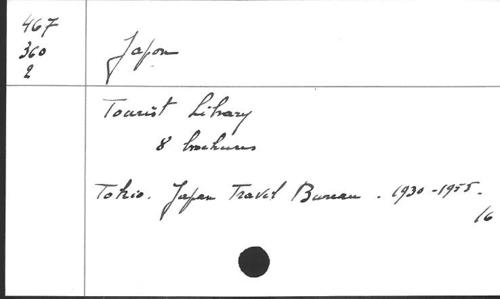 467
360
2
Japon
Tourist Library
8 brochures
Tokio. Japan Travel Bureau. 1930-1955.
16